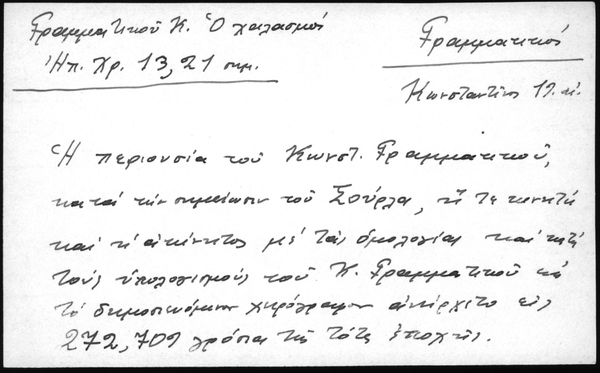 Γραμματικοῦ Κ. Ὁ χαλασμός
Ἠπ. Χρ. 13, 21 σημ.
Γραμματικός
Κωνσταντῖνος 19. αἰ.
Ἡ περιουσία τοῦ Κωνστ. Γραμματικοῦ,
κατὰ τὴν σημείωσιν τοῦ Σούρλα, ἥ τε κινητή
καὶ ἡ ἀκίνητος μὲ τὰς ὁμολογίας καὶ κατά
τοὺς ὑπολογισμοὺς τοῦ Κ. Γραμματικοῦ
τὸ δημοσιευόμενον χειρόγραφον ἀνήρχετο εἰς
272,709 γρόσια τῆς τότε ἐποχῆς.